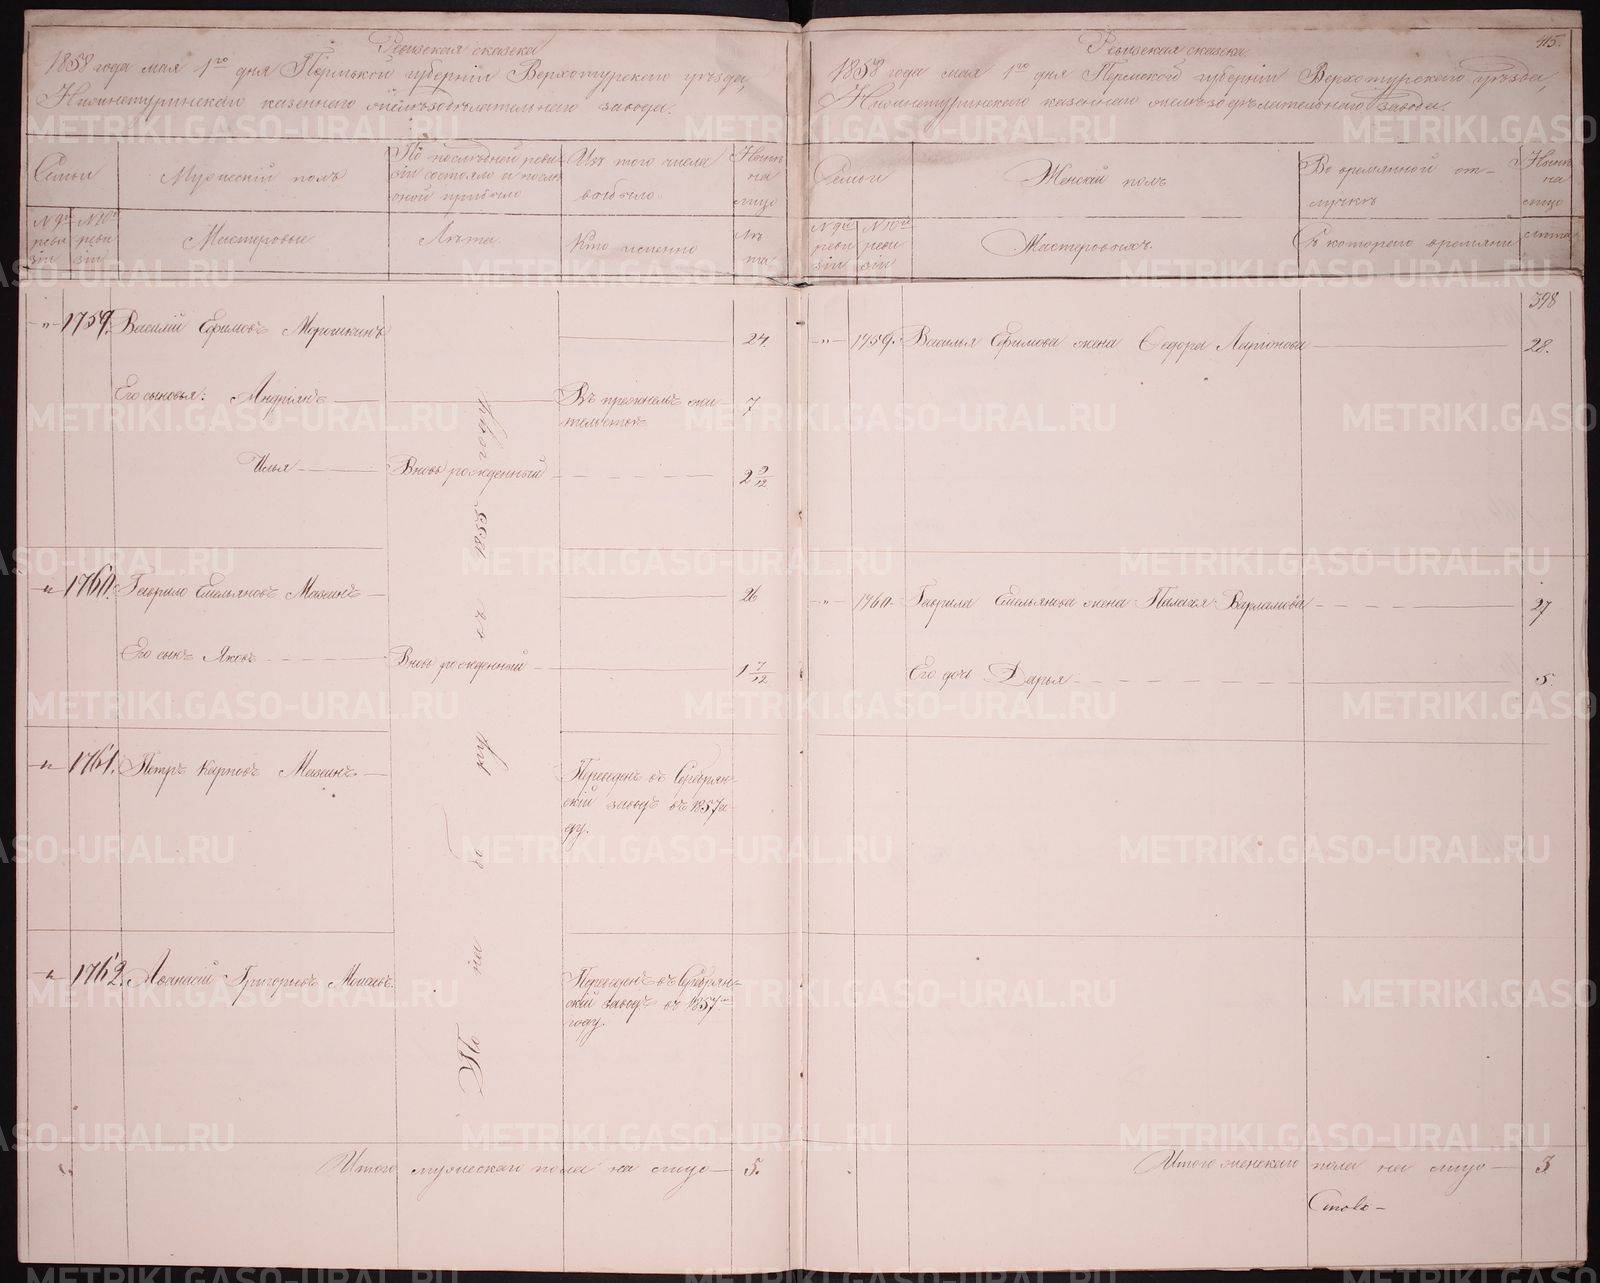 Ревизская сказка
1858 года мая 1го дня Пермской губернии Верхотурскаго уезда,
Нижнетуринскаго казеннаго железоделательнаго завода.
Семьи
Мужескій полъ
По последней реви-
зіи состояло и после
оной прибыло
Изъ того числа
выбыло.
Ныне
на
лицо
№ 9й
реви
зіи
№ 10й
реви
зіи
Мастеровые
Лета.
Кто именно
Ле
та.
-"- 1759. Василій Ефимовъ Морошкинъ 24.
Его сыновья: Андріянъ Въ прежнемъ жи- 7
тельстве
Илья Вновь рожденный 2 9/12
-"- 1760. Гаврило Емельяновъ Мазеинъ 26
Его сынъ Яковъ Вновь рожденный 1 7/12
-"- 1761. Петръ Карповъ Мазеинъ Переведенъ въ Серебрян-
скій заводъ въ 1857 го-
ду.
-"- 1762. Афанасій Григорьевъ Переведенъ въ Серебрян-
скій заводъ въ 1857
году.
1855 года
Итого мужескаго пола на лицо 5.
415.
Ревизская сказка
1858 года мая 1го дня Пермской губерніи Верхотурскаго уезда,
Нижнетуринскаго казеннаго железоделательнаго завода.
Семьи
Женскій полъ
Во временной от-
лучке
Ныне
на
лицо
№ 9й
реви
зіи
№ 10й
реви
зіи
Мастеровыхъ.
Съ котораго времяни
лета
398
-"- 1759. Василья Ефимова жена Федора Ларионова 28.
-"- 1760. Гаврила Емельянова жена Палагея Варламова 27
Его дочь Дарья 5.
Итого женскаго пола на лицо 3
METRIKI.GASO-URAL.RU